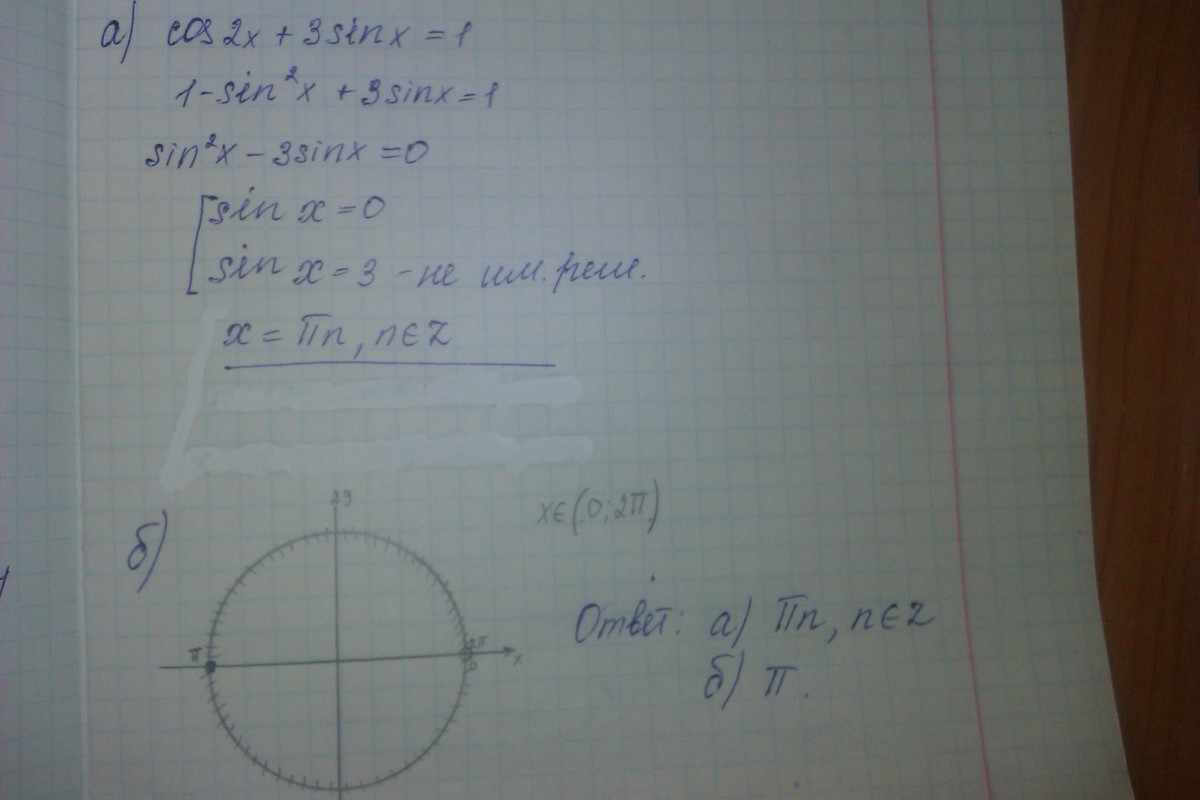 а) cos2x + 3sinx = 1
1-sin²x + 3sinx = 1
sin²x - 3sinx = 0
sin x = 0
sin x = 3 - не им. реш.
x = πn, n∈Z
б)
y
x∈(0; 2π)
π
2π
0
x
Ответ: а) πn, n∈Z
б) π.